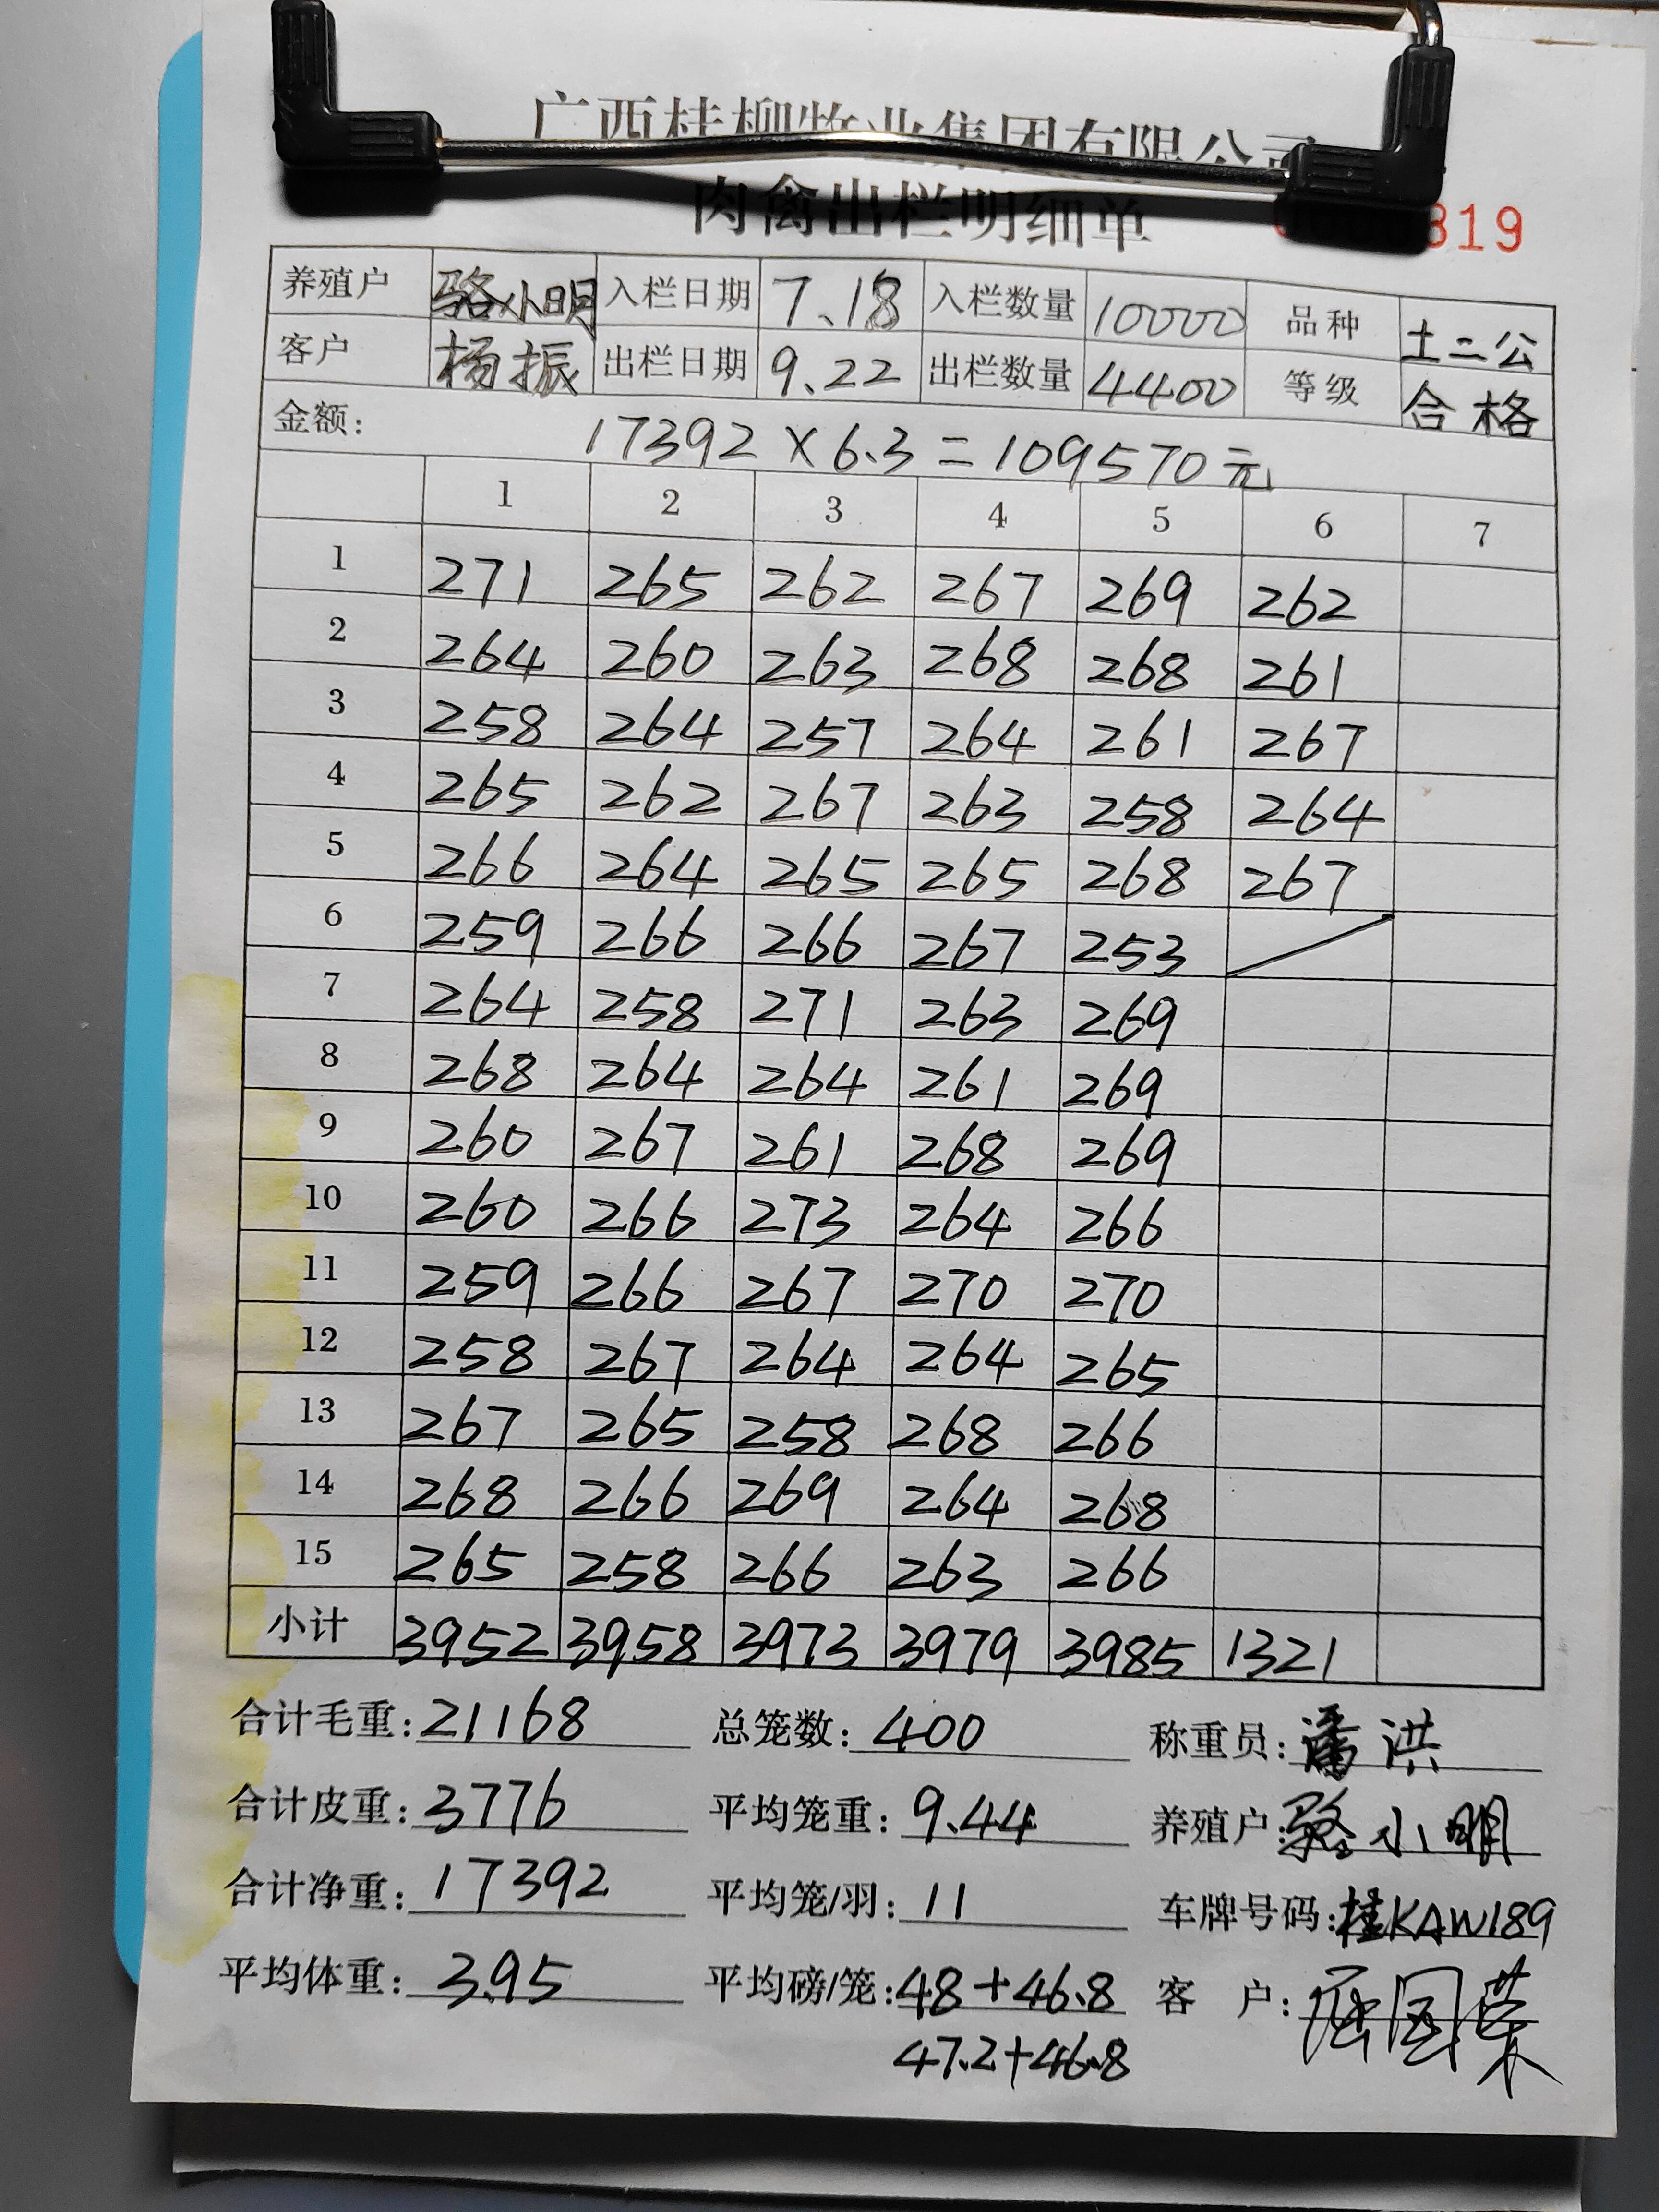 广西桂柳牧业集团有限公司
肉禽出栏明细单 819
养殖户 骆小明 入栏日期 7.18 入栏数量 10000 品种 土二公
客户 杨振 出栏日期 9.22 出栏数量 4400 等级 合格
金额: 17392×6.3=109570元
1 2 3 4 5 6 7
1 271 265 262 267 269 262
2 264 260 263 268 268 261
3 258 264 257 264 261 267
4 265 262 267 263 258 264
5 266 264 265 265 268 267
6 259 266 266 267 253
7 264 258 271 263 269
8 268 264 264 261 269
9 260 267 261 268 269
10 260 266 273 264 266
11 259 266 267 270 270
12 258 267 264 264 265
13 267 265 258 268 266
14 268 266 269 264 268
15 265 258 266 263 266
小计 3952 3958 3973 3979 3985 1321
合计毛重: 21168 总笼数: 400 称重员: 潘洪
合计皮重: 3776 平均笼重: 9.44 养殖户: 骆小明
合计净重: 17392 平均笼/羽: 11 车牌号码: 桂KAW189
平均体重: 3.95 平均磅/笼: 48+46.8 客户: 国荣
47.2+46.8